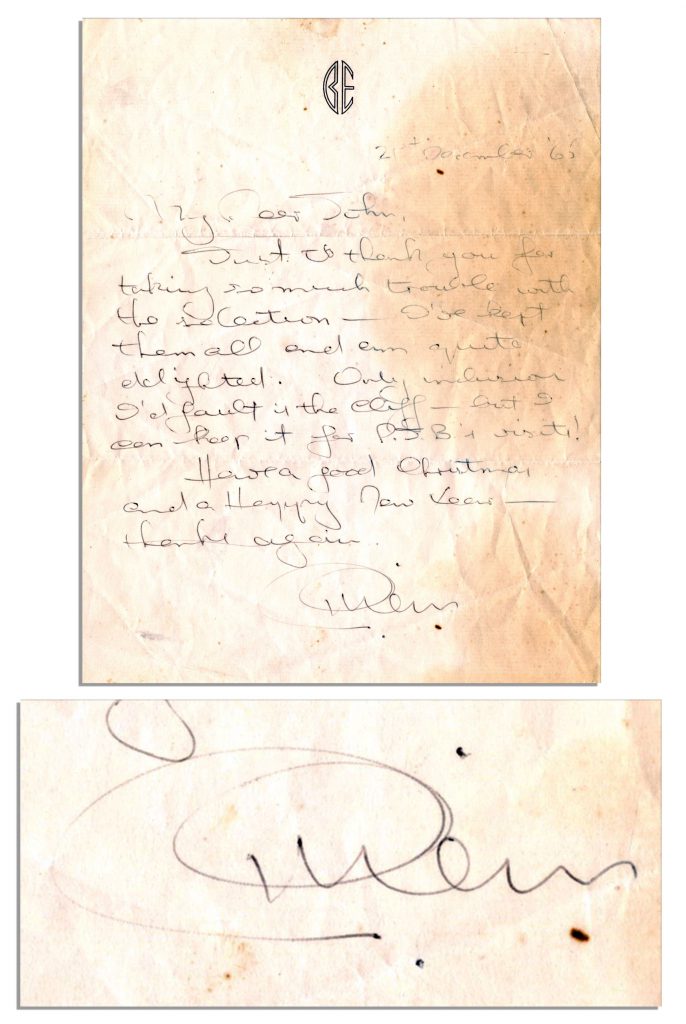 BE
21st December
My Dear John,
Just to thank you for
taking so much trouble with
the selection — I've kept
them all and am quite
delighted. Only inclusion
I'd fault is the Cliff — but I
can keep it for P.J.B's visits!
Have a good Christmas
and a Happy New Year —
thanks again.
Brian
Brian